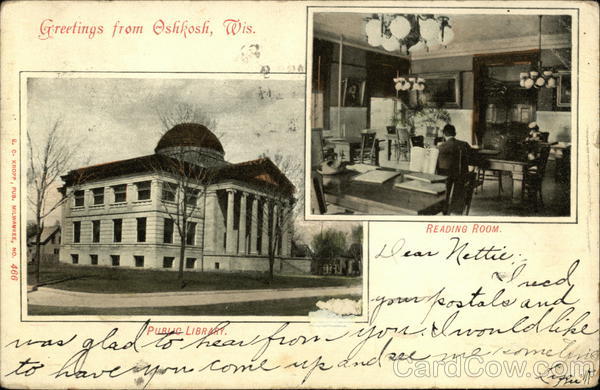 Greetings from Oshkosh, Wis.
E. C. KROPP, PUB. MILWAUKEE, NO. 466
READING ROOM.
PUBLIC LIBRARY.
Dear Nettie:
I recd
your postals and
was glad to hear from you. I would like
to have you come up and see me sometime
CardCow.com